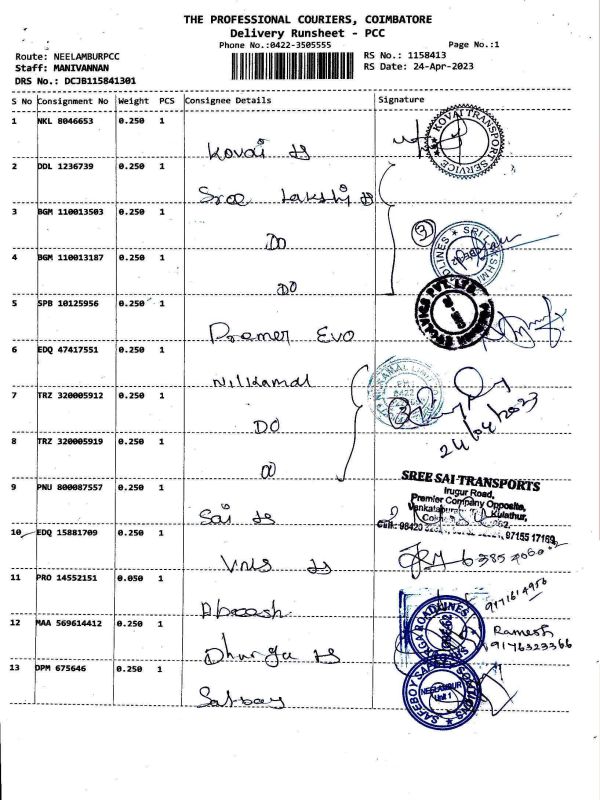 THE PROFESSIONAL COURIERS, COIMBATORE
Delivery Runsheet - PCC
Phone No.:0422-3505555
Page No.:1
Route: NEELAMBURPCC
RS No.: 1158413
Staff: MANIVANNAN
RS Date: 24-Apr-2023
DRS No.: DCJB115841301
S No Consignment No Weight PCS Consignee Details Signature
1 NKL 8046653 0.250 1
Kovai
KOVAI TRANSPORT SERVICE
2 DDL 1236739 0.250 1
Sree Lakshi
3 BGM 110013503 0.250 1
DO
3
SRI LAKSHMI
4 BGM 110013187 0.250 1
DO
5 SPB 10125956 0.250 1
Premer Evo
6 EDQ 47417551 0.250 1
Nilkamal
7 TRZ 320005912 0.250 1
DO
3
24/04/2023
8 TRZ 320005919 0.250 1
9 PNU 800087557 0.250 1
Sai
SREE SAI TRANSPORTS
Irugur Road,
Premier Company Opposite,
Kulathur,
97155 17169
10 EDQ 15881709 0.250 1
11 PRO 14552151 0.050 1
9171614956
12 MAA 569614412 0.250 1
Dhurga
ROADLINES
Ramesh
9176323366
13 DPM 675646 0.250 1
SAFEBOY SAFETY SOLUTIONS
NEELAMBUR
Unit 1